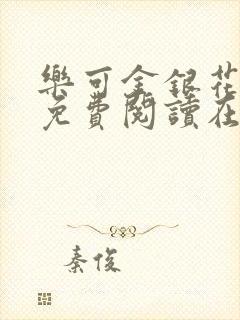 樂可金銀花
免費閱讀在
秦俊